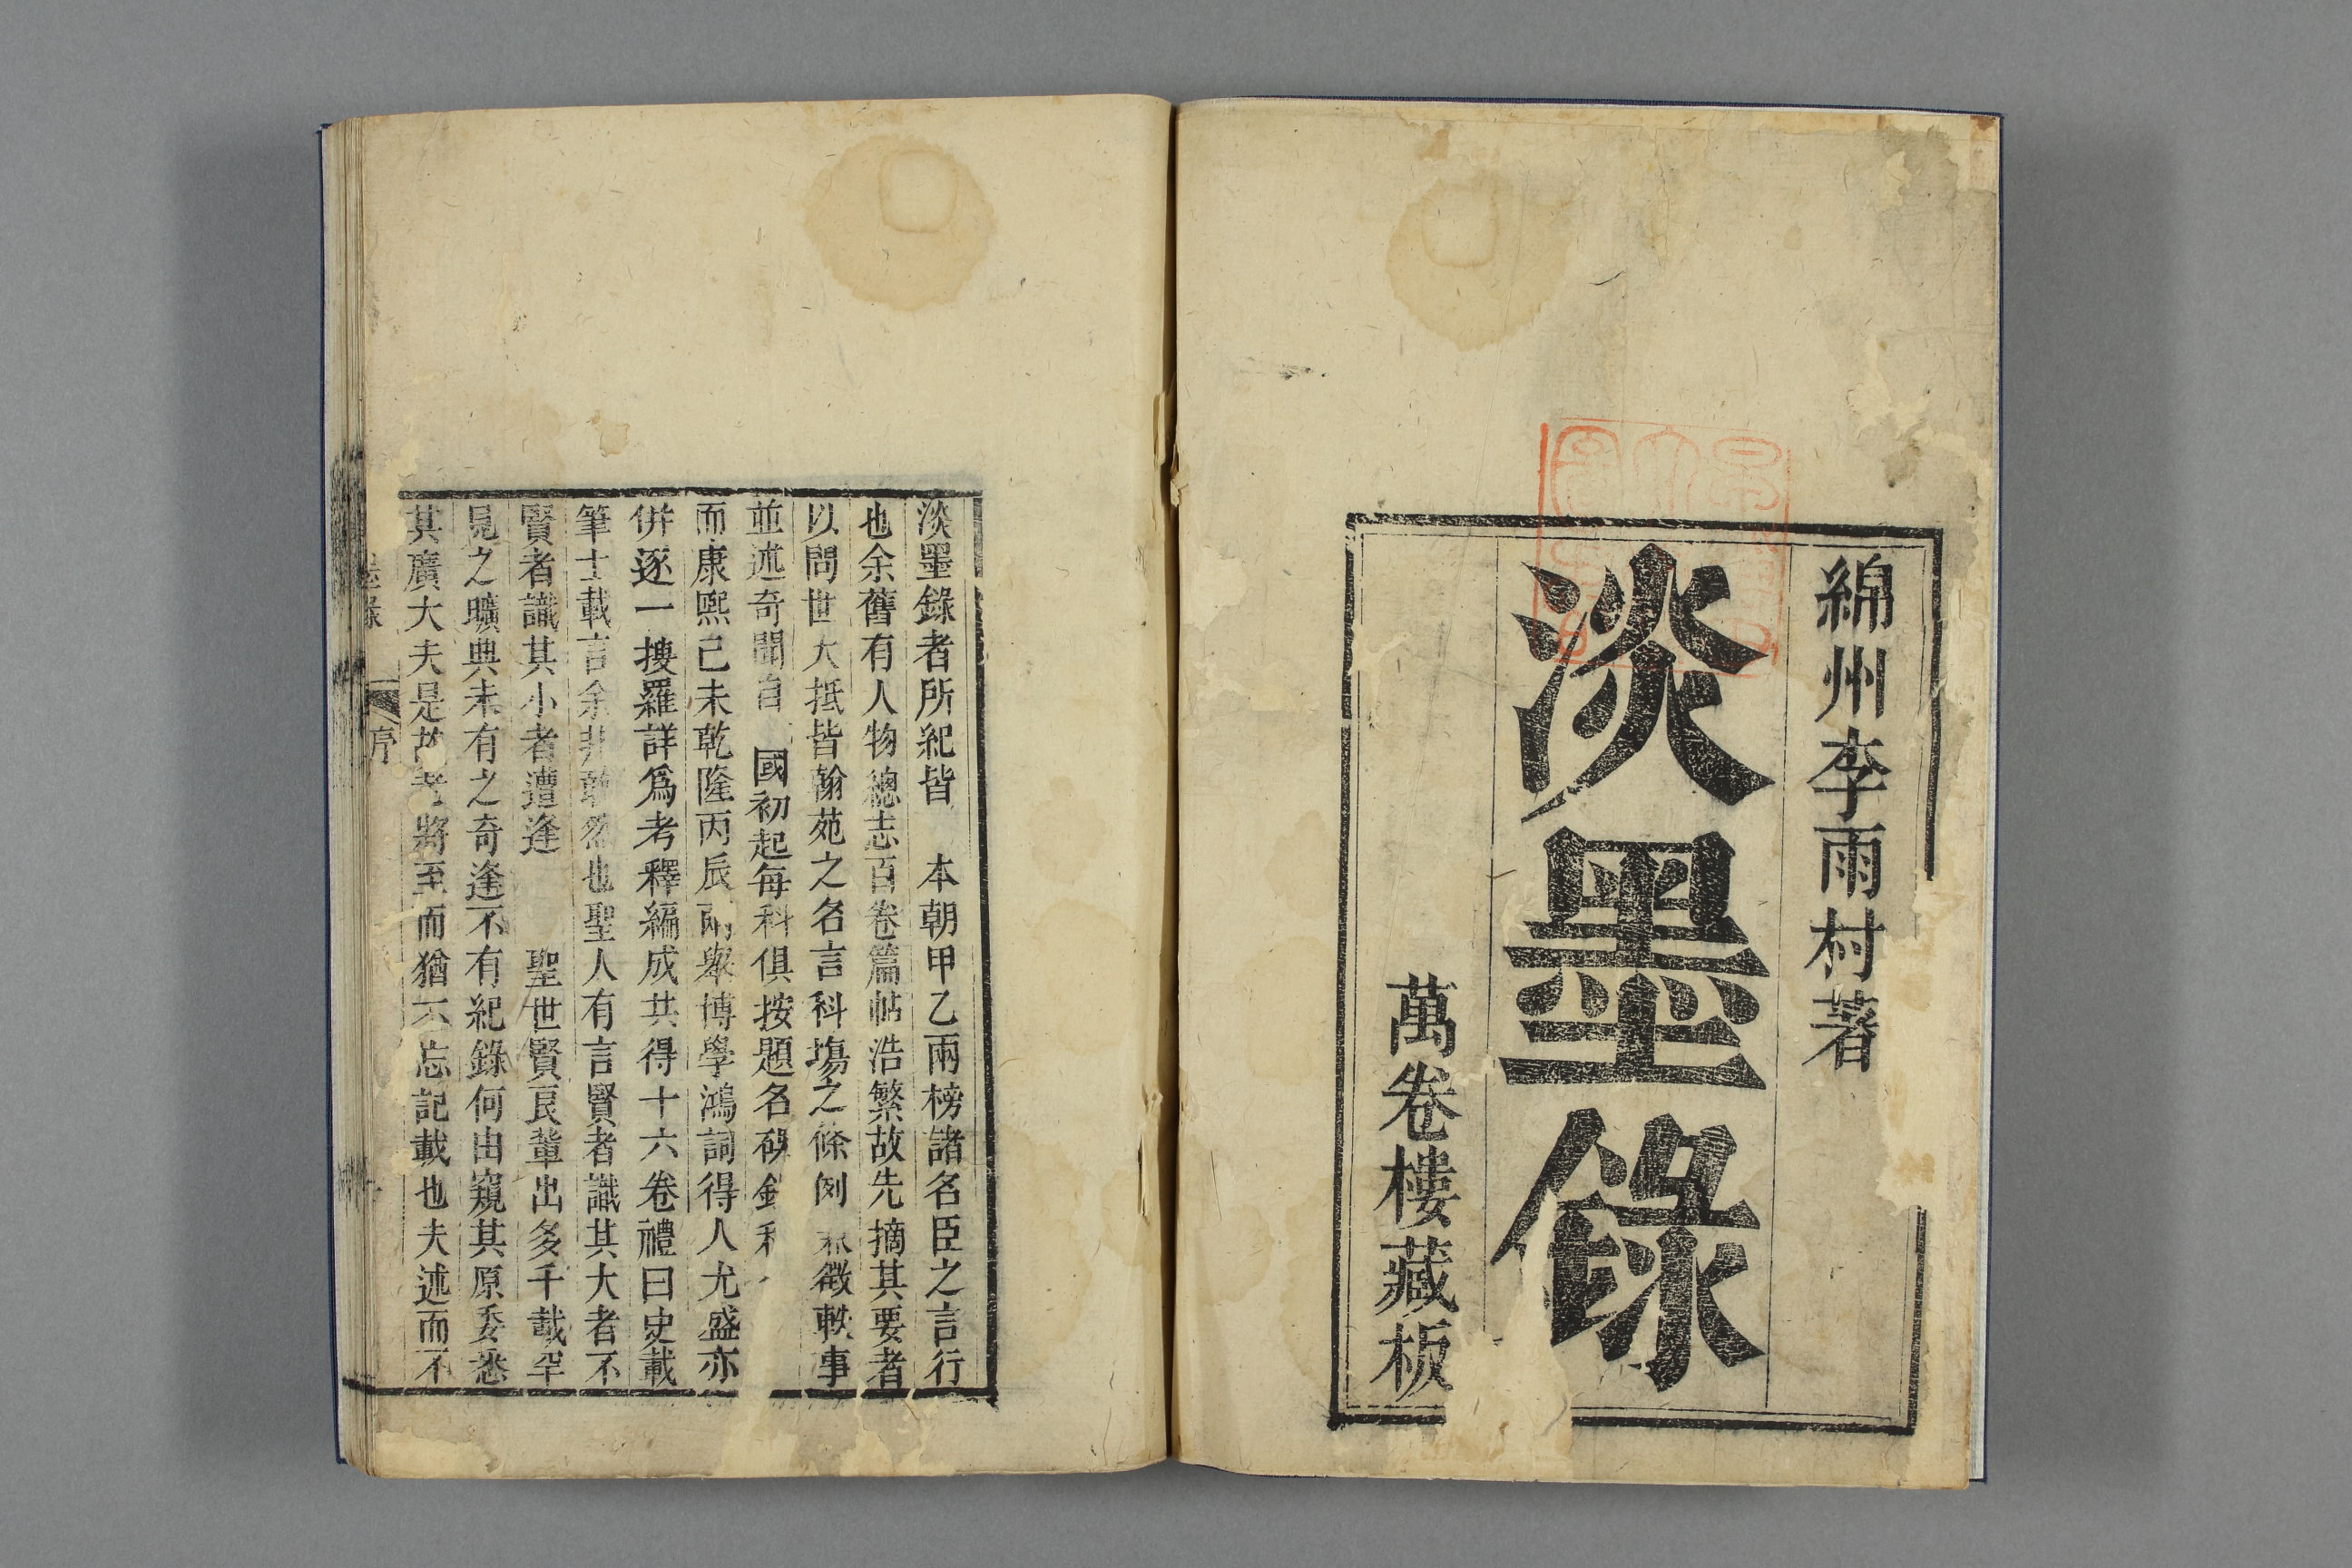 綿州李雨村著
淡墨錄
萬卷樓藏板
淡墨錄者所紀皆 本朝甲乙兩榜諸名臣之言行
也余舊有人物總志百卷篇帖浩繁故先摘其要者
以問世大抵皆翰苑之名言科塲之條例 徵軼事
並述奇聞自 國初起每科俱按題名碑錄
而康熙己未乾隆丙辰兩舉博學鴻詞得人尤盛亦
併逐一搜羅詳爲考釋編成共得十六卷禮曰史載
筆士載言余非敢然也聖人有言賢者識其大者不
賢者識其小者遭逢 聖世賢良輩出多千載罕
見之曠典未有之奇逢不有紀錄何由窺其原委悉
其廣大夫是故老將至而猶不忘記載也夫述而不
墨錄 序